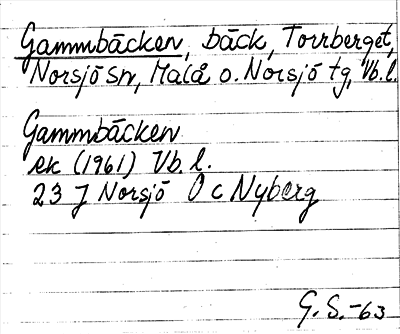 Gammbäcken, bäck, Torrberget,
Norsjö sn, Malå o. Norsjö tg, Vb.l.
Gammbäcken
ek (1961) Vb.l.
23 J Norsjö O c Nyberg
G.S.-63